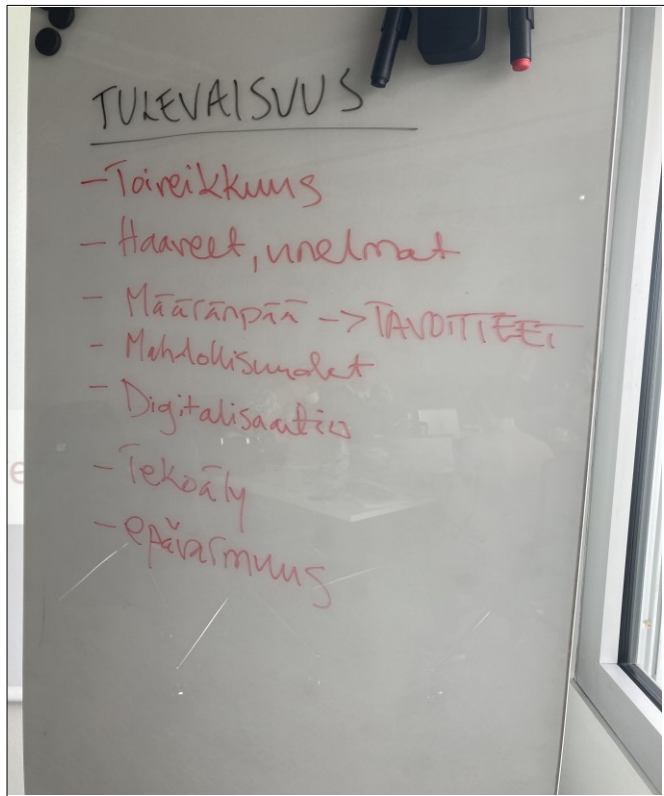 TULEVAISUUS
- Toiveikkuus
- Haaveet, unelmat
- Määränpää -> TAVOITTEET
- Mahdollisuudet
- Digitalisaatio
- Tekoäly
- epävarmuus
e